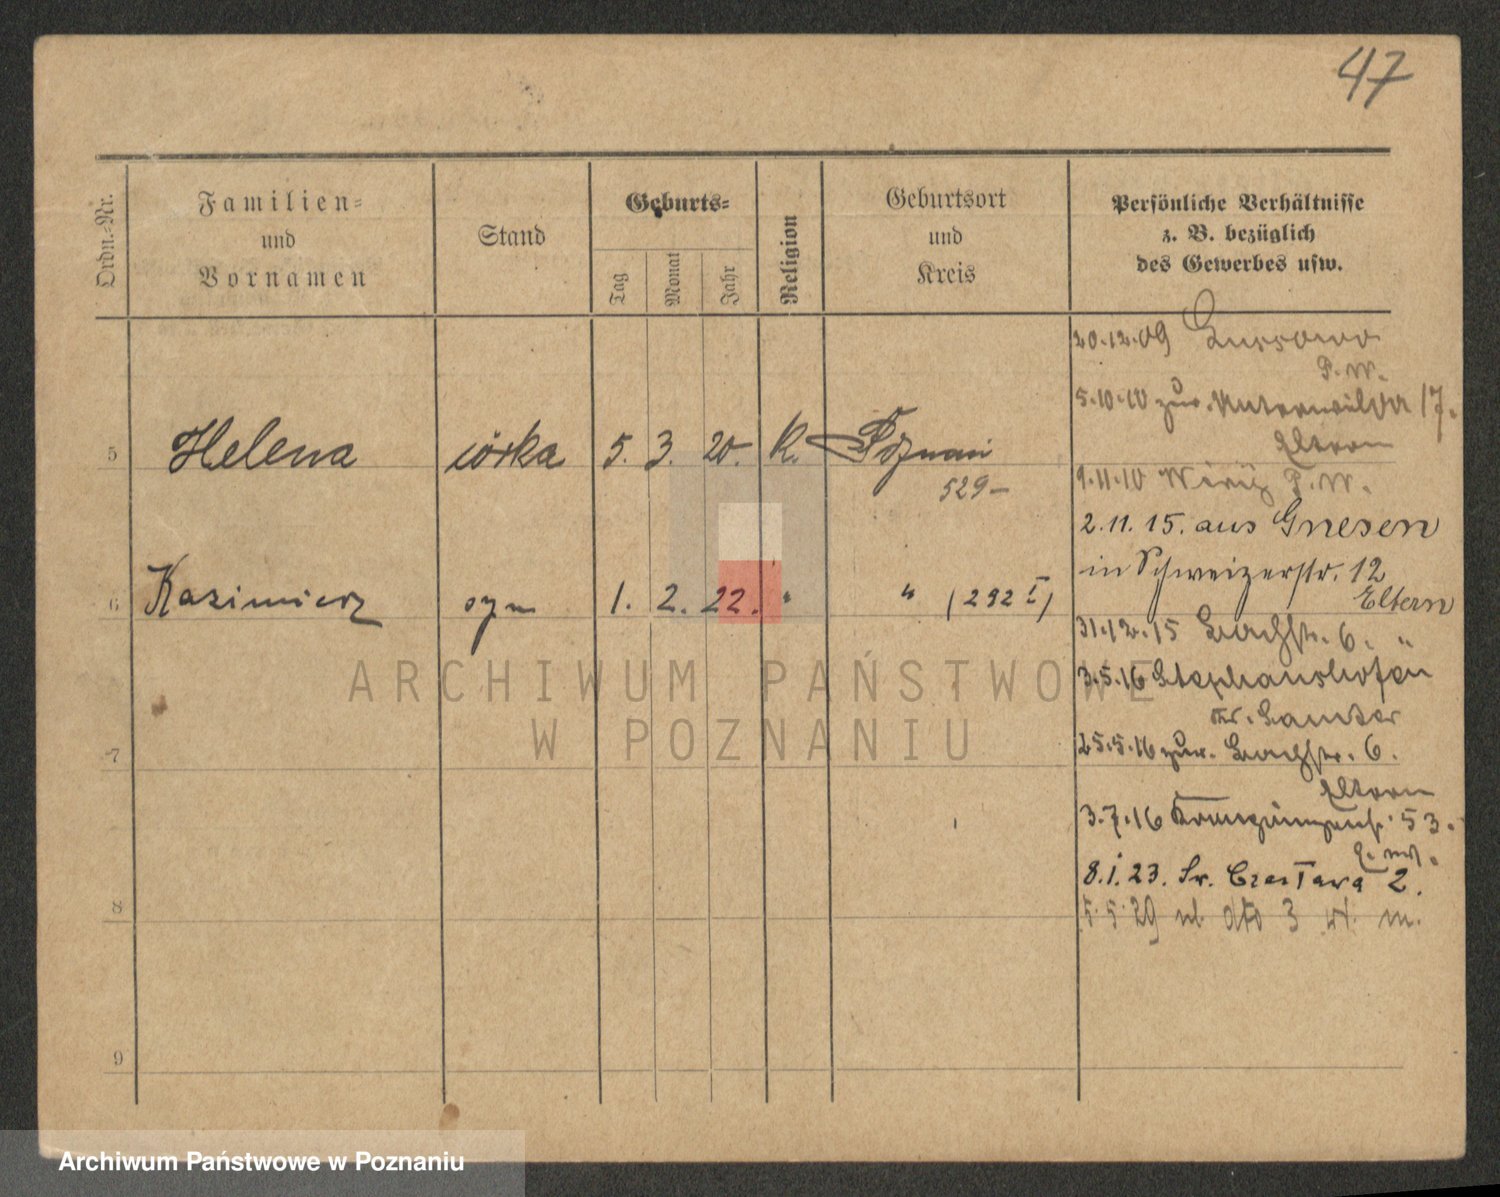 47
Ordn.-Nr.
Familien-
und
Vornamen
Stand
Geburts-
Tag
Monat
Jahr
Religion
Geburtsort
und
Kreis
Persönliche Verhältnisse
z. B. bezüglich
des Gewerbes usw.
20.12.09
P. W.
5.10.10 zur. Unterwilda 17.
Eltern
5 Helena córka 5. 3. 20. K. Poznań
529
9.11.10 P. W.
2.11.15. aus Gnesen
in Schweizerstr. 12
Eltern
6 Kazimierz syn 1. 2. 22. " " (292 I)
31.12.15 Bachstr. 6. "
3.5.16 Stephanshofen
Kr. Samter
7
25.5.16 zur. Bachstr. 6.
Eltern
3.7.16 53.
8.1.23. Sw. Czesława 2.
8
5.5.29 dto 3 m.
9
ARCHIWUM PAŃSTWOWE
W POZNANIU
Archiwum Państwowe w Poznaniu